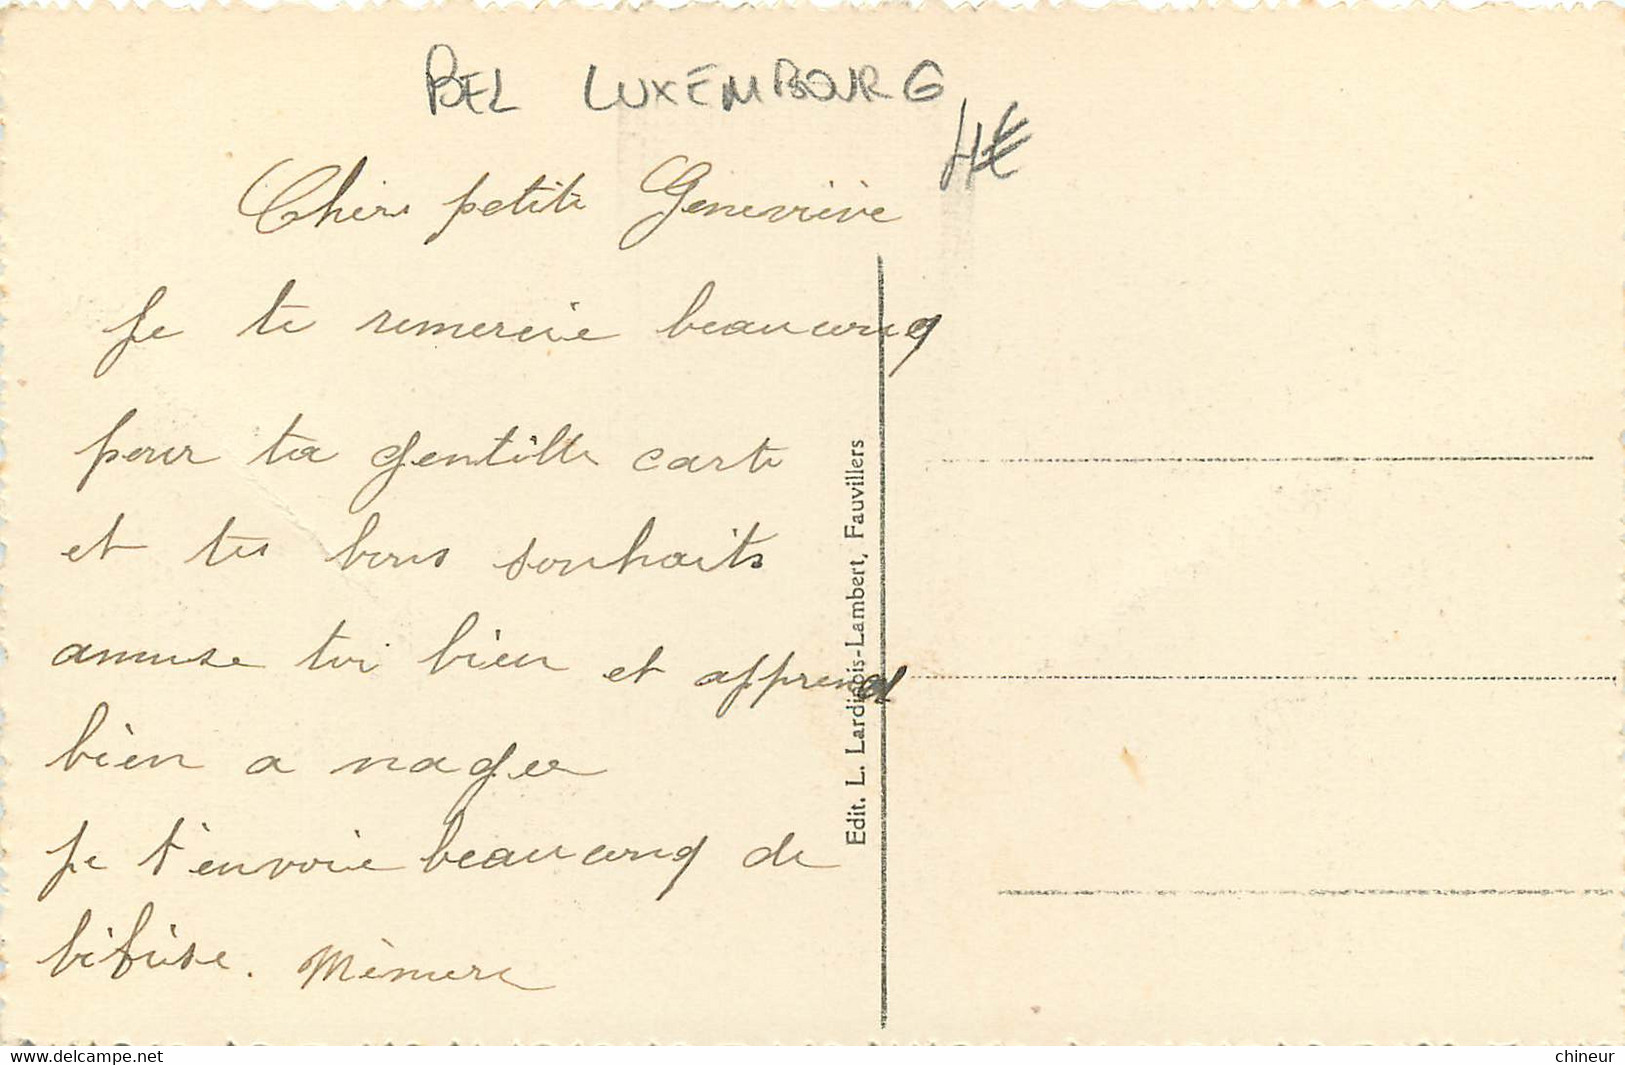 BEL LUXEMBOURG
4€
Chère petite Geneviève
je te remercie beaucoup
pour ta gentille carte
et tes bons souhaits
amuse toi bien et apprend
bien a nager
je t'envoie beaucoup de
Mèmere
Edit. L. Lardinois-Lambert, Fauvillers
www.delcampe.net
chineur